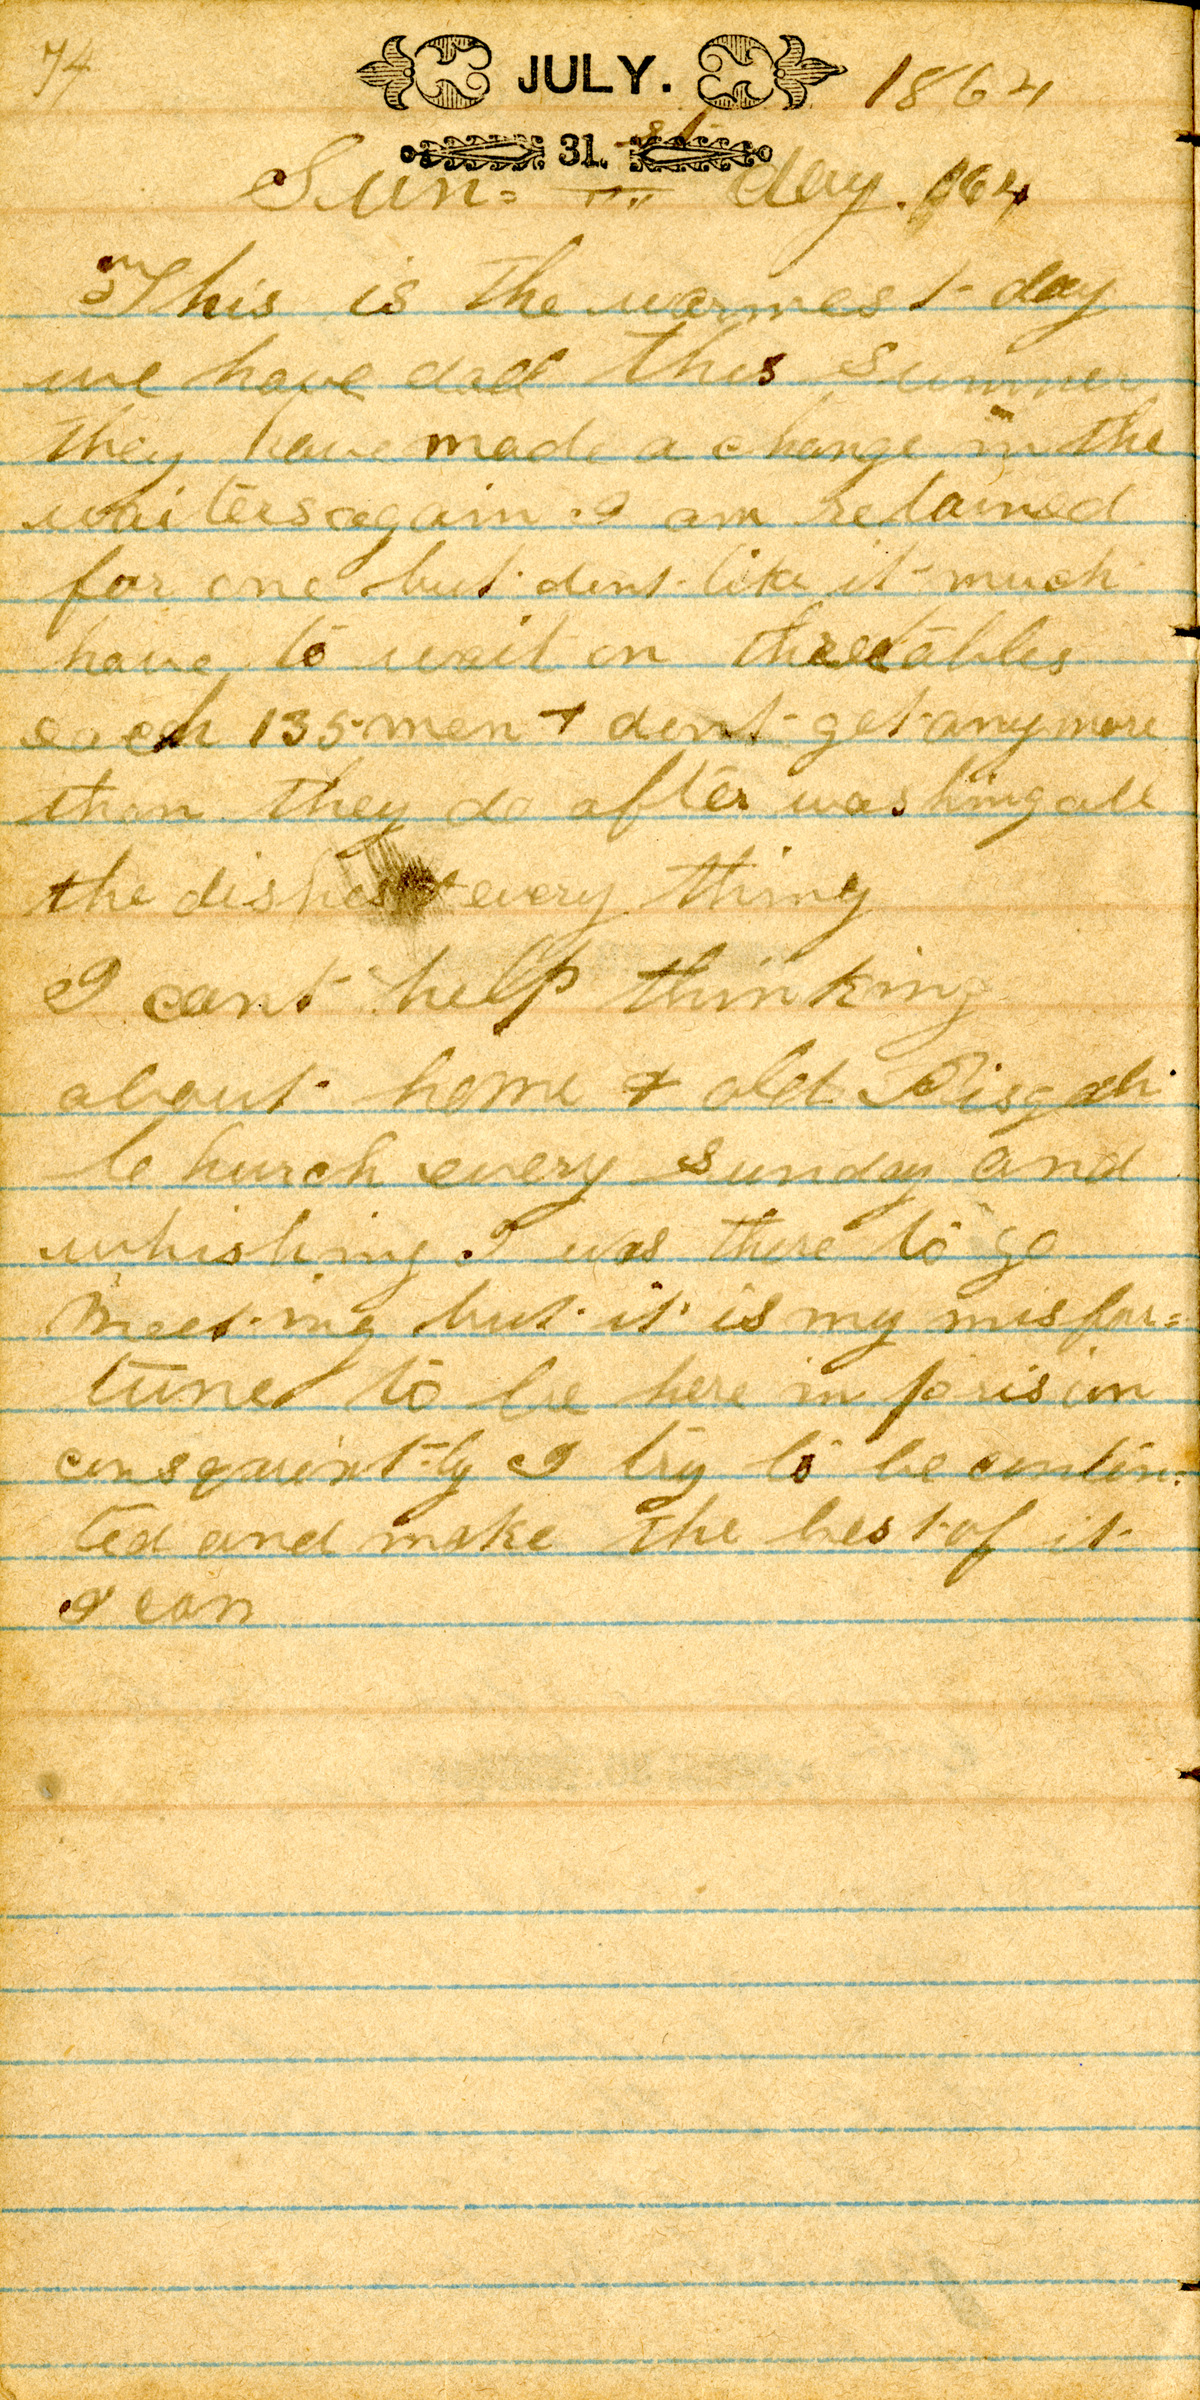 74 JULY. 1864
31. st
Sun= day. 64
This is the warmest day
we have dad this Summer
they have made a change in the
waiters again. I am retained
for one but dont like it much
have to wait on three tables
each 135 men + dont get any more
than they do after washing all
the dishes + every thing
I cant help thinking
about home + old Pisgah
Church every Sunday and
whishing I was there to go
Meeting but it is my misfor=
tune to be here in prison
consquently I try to be conten=
ted and make the best of it
I can